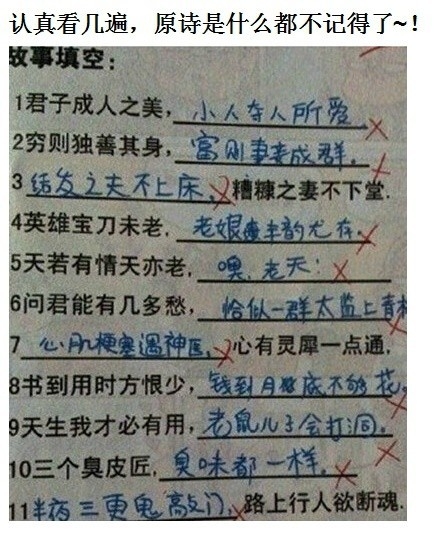 认真看几遍，原诗是什么都不记得了~！
故事填空：
1君子成人之美，小人夺人所爱
2穷则独善其身，富则妻妾成群。
3结发之夫不上床，糟糠之妻不下堂.
4英雄宝刀未老，老娘丰韵尤存。
5天若有情天亦老，噢，老天！
6问君能有几多愁，恰似一群太监上青
7心肌梗塞遇神医，心有灵犀一点通，
8书到用时方恨少，钱到月底不够花。
9天生我才必有用，老鼠儿子会打洞。
10三个臭皮匠，臭味都一样。
11半夜三更鬼敲门，路上行人欲断魂.